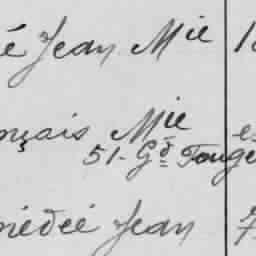 é Jean Mie 1
nçais Mie e
51- Gd Fouge
piédeé Jean 7